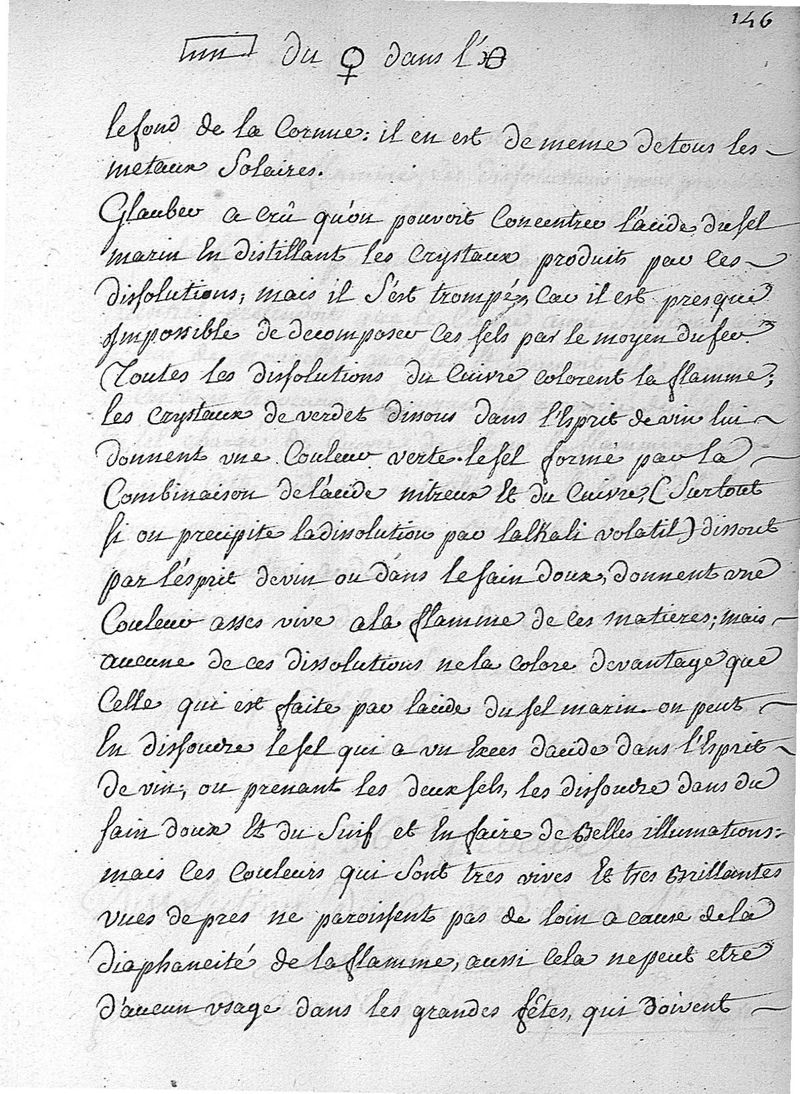 146
du ♀ dans l'
le fond de la Cornue: il en est de meme de tous les
metaux Solaires.
Glauber a crû qu'on pouvoit Concentrer l'acide du sel
marin En distillant les Crystaux produits par Ces
dissolutions; mais il s'est trompé, Car il est presque
Impossible de decomposer Ces sels par le moyen du feu.
Toutes les dissolutions du Cuivre colorent la flamme;
les Crystaux de verdet dissous dans l'Esprit de vin lui
donnent vne Couleur verte. le sel formé par la
Combinaison de l'acide nitreux Et du Cuivre, (Surtout
si on precipite la dissolution par lalkali volatil) dissout
par l'ésprit de vin ou dans le sain doux, donnent vne
Couleur asses vive a la flamme de ces matieres; mais
aucune de ces dissolutions ne la colore devantage que
Celle qui est faite par lacide du sel marin. on peut
En dissoudre le sel qui a vn Exces dacide dans l'Esprit
de vin, ou prenant les deux sels, les dissoudre dans du
sain doux Et du Suif et En faire de Belles illumations:
mais Ces Couleurs qui sont tres vives Et tres Brillantes
vues de pres ne paroissent pas de loin a cause de la
diaphaneité de la flamme, aussi Cela ne peut etre
d'aucun vsage dans les grandes fêtes, qui doivent